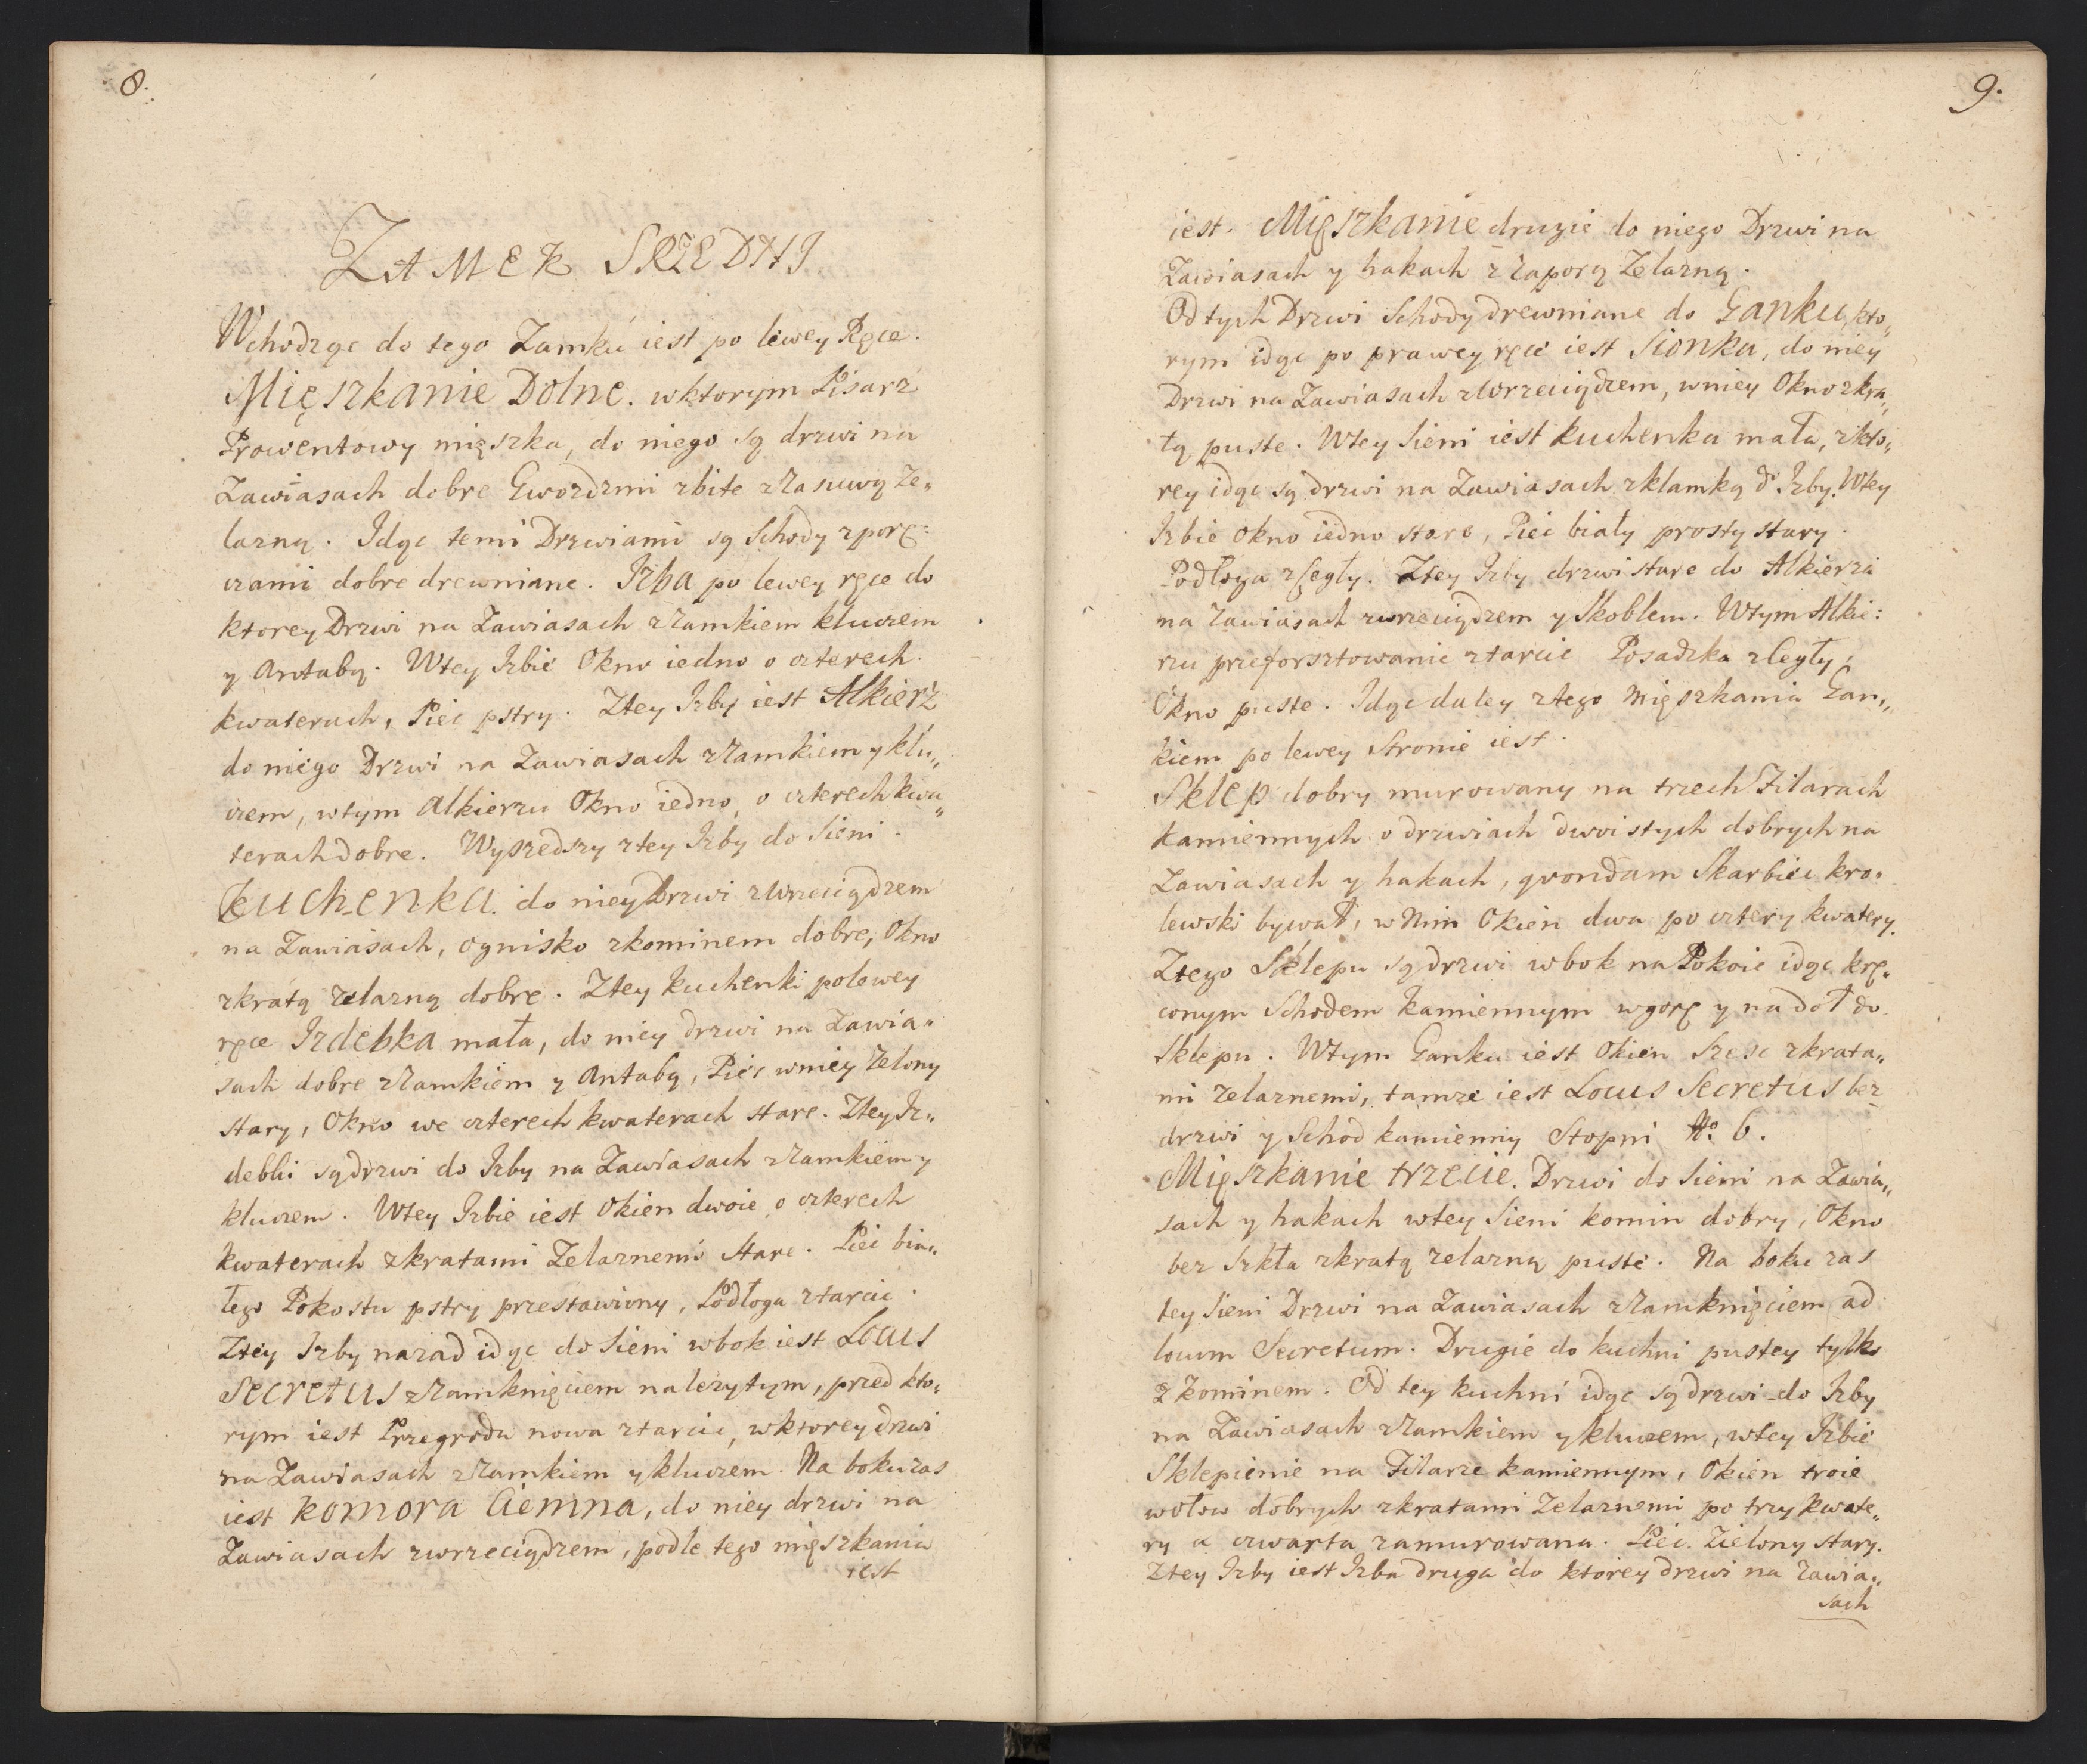 8.
ZAMEK SRZEDNI
Wchodząc do tego Zamku iest po lewey Ręce.
Mięszkanie Dolne. wktorym Pisarz
Prowentowy mięszka, do niego są drzwi na
Zawiasach dobre Gwozdzmi zbite zZasuwą Ze„
lazną. Idąc temi Drzwiami są Schody zporę:
czami dobre drewniane. Izba po lewey ręce do
ktorey Drzwi na Zawiasach zZamkiem kluczem
y Antabą. Wtey Izbie Okno iedno o czterech
kwaterach, Piec pstry. Ztey Izby iest Alkierz
do niego Drzwi na Zawiasach zZamkiem y klu„
czem, wtym Alkierzu Okno iedno, o czterech kwa„
terach dobre. Wyszedszy ztey Izby do Sieni.
Kuchenka. do niey Drzwi zWrzeciądzem
na Zawiasach, ognisko zkominem dobre, Okno
zkratą zelazną dobre. Ztey kuchenki polewey
ręce Izdebka mała, do niey drzwi na Zawia„
sach dobre zZamkiem y Antabą, Piec wniey Zelony
stary, Okno we czterech kwaterach stare. Ztey Iz„
debki są drzwi do Izby na Zawiasach zZamkiem y
kluczem. Wtey Izbie iest Okien dwoie o czterech
kwaterach zkratami Zelaznemi Stare. Piec bia„
łego Pokostu pstry przestawiony, Podłoga ztarcic.
Ztey Izby nazad idąc do Sieni wbok iest Locus
Secretus zZamknięciem nalezytym, przed kto„
rym iest Przegroda nowa ztarcic, wktorey drzwi
na Zawiasach zZamkiem y kluczem. Na boku zas
iest Komora Ciemna, do niey drzwi na
Zawiasach zwrzeciądzem, podle tego mięszkania
iest
9.
iest. Mięszkanie drugie do niego Drzwi na
Zawiasach y hakach zZaporą Zelazną.
Od tych Drzwi Schody drewniane do Ganku, kto„
rym idąc po prawey ręce iest Sionka, do niey
Drzwi na Zawiasach zWrzeciądzem, wniey Okno zkra„
tą puste. Wtey Sieni iest kuchenka mała, zkto„
rey idąc są drzwi na Zawiasach zklamką do Izby. Wtey
Izbie okno iedno stare, Piec biały prosty stary.
Podłoga zCegły. Ztey Izby drzwi stare do Alkierza
na Zawiasach zwrzeciądzem y Skoblem. Wtym Alkie:
rzu przeforsztowanie ztarcic Posadzka zCegły,
Okno puste. Idąc daley ztego mięszkania Gan„
kiem po lewey Stronie iest.
Sklep dobry murowany na trzech Filarach
kamiennych o drzwiach dwoistych dobrych na
Zawiasach y hakach, quondam Skarbiec kro„
lewski bywał, w Nim Okien dwa po cztery kwatery.
Ztego Sklepu są drzwi wbok na Pokoie idąc krę„
conym Schodem kamiennym wgorę y na doł do
Sklepu. Wtym Ganku iest Okien Szesc zkrata„
mi zelaznemi, tamze iest Locus Secretus bez
drzwi y Schod kamienny Stopni No. 6.
Mięszkanie trzecie. Drzwi do Sieni na Zawia„
sach y hakach wtey Sieni komin dobry, Okno
bez Szkła zkratą zelazną puste. Na boku zas
tey Sieni Drzwi na Zawiasach zZamknięciem ad
locum Secretum. Drugie do kuchni pustey tylko
z kominem. Od tey kuchni idąc są drzwi do Izby
na Zawiasach zZamkiem y kluczem, wtey Izbie
Sklepienie na Filarze kamiennym, Okien troie
wołow dobrych zkratami Zelaznemi po trzy kwate„
ry a czwarta zamurowana. Piec Zielony stary.
Ztey Izby iest Izba druga do ktorey drzwi na Zawia„
sach